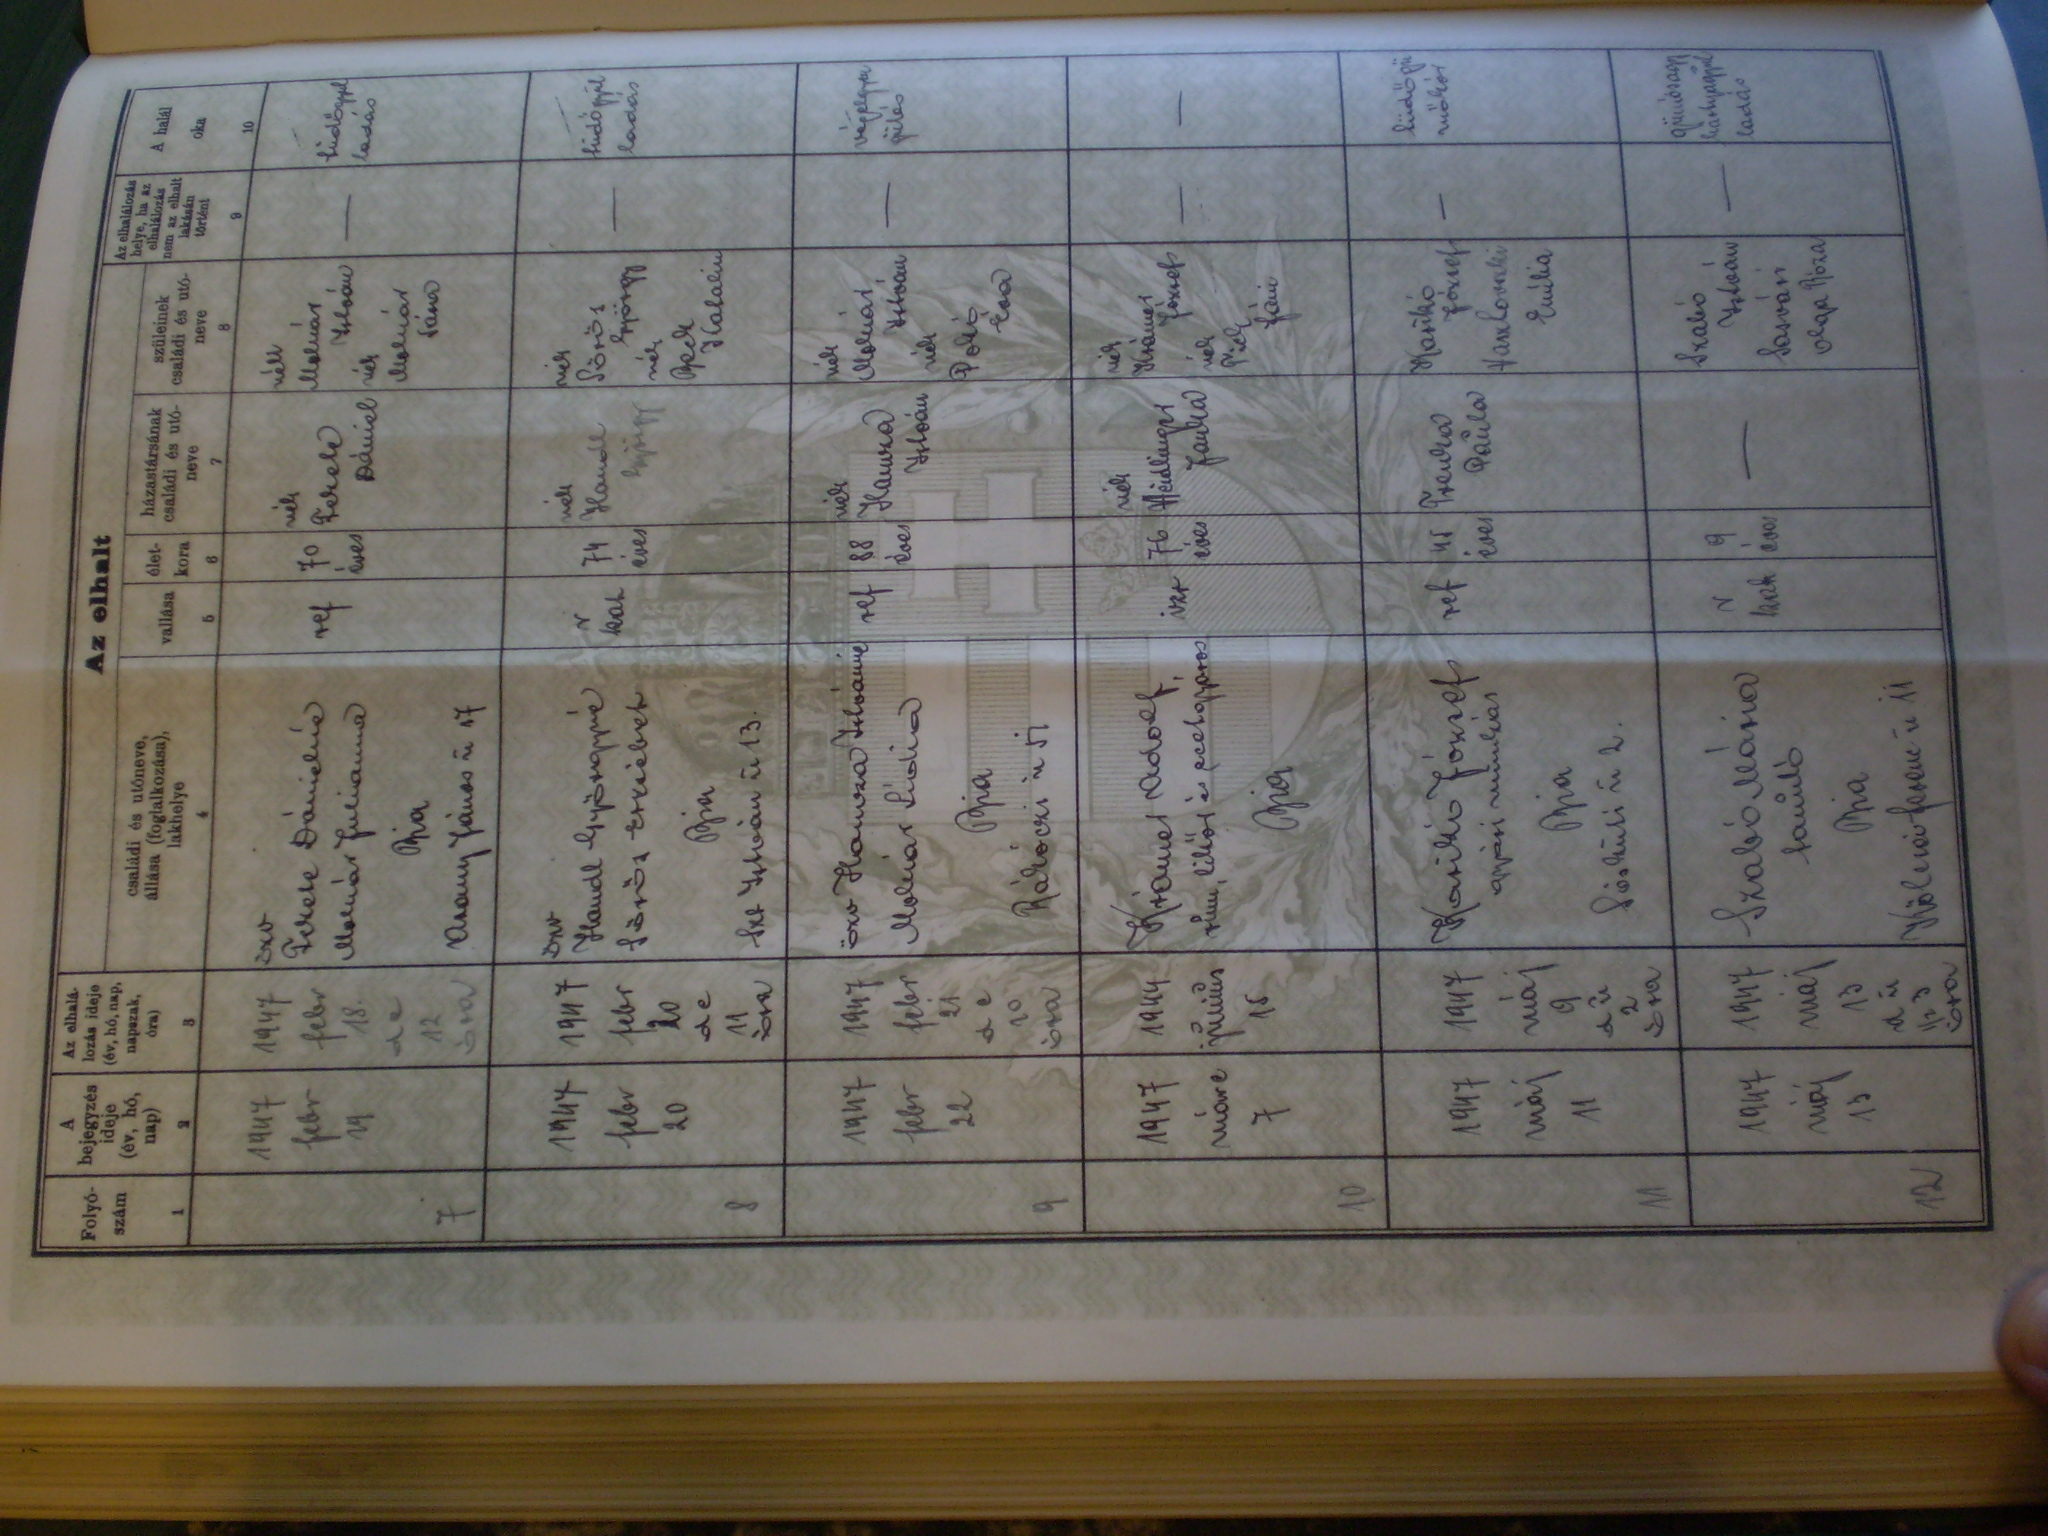 Az elhalt
Folyó-
szám
A
bejegyzés
ideje
(év, hó,
nap)
Az elhalá-
lozás ideje
(év, hó, nap,
napszak,
óra)
családi és utóneve,
állása (foglalkozása),
lakhelye
vallása
élet-
kora
házastársának
családi és utó-
neve
szüleinek
családi és utó-
neve
Az elhalálozás
helye, ha az
elhalálozás
nem az elhalt
lakásán
történt
A halál
oka
1
2
3
4
5
6
7
8
9
10
7
1947
febr
19
1947
febr
18.
de
12
óra
özv
Fekete Dánielné
Molnár Julianna
Bia
Arany János u 17
ref
70
éves
néh
Fekete
Dániel
néh
Molnár
István
néh
Molnár
Sára
—
8
1947
febr
20
1947
febr
20
de
11
óra
özv
Handl Györgyné
Sörös Erzsébet
Bia
Szt István u 13.
r
kath
74
éves
néh
Handl
György
néh
Sörös
György
néh
Beck
Katalin
—
9
1947
febr
22
1947
febr
21
de
10
óra
özv Hanzsa Istvánné
Molnár Lídia
Bia
Rákóczi u 51
ref
88
éves
néh
István
néh
Molnár
István
néh
Éva
—
10
1947
márc
7
1944
június
15
Krámer Adolf,
Bia
izr
76
éves
néh
néh
Krámer
József
néh
Pick
Fáni
—
—
11
1947
máj
11
1947
máj
9
du
2
óra
Karikó József
gyári munkás
Bia
u 2.
ref
45
éves
Paula
Karikó
József
Emília
—
12
1947
máj
13
1947
máj
13
du
1/2 3
óra
Szabó Mária
tanuló
Bia
u 11
r
kath
9
éves
—
Szabó
István
Róza
—